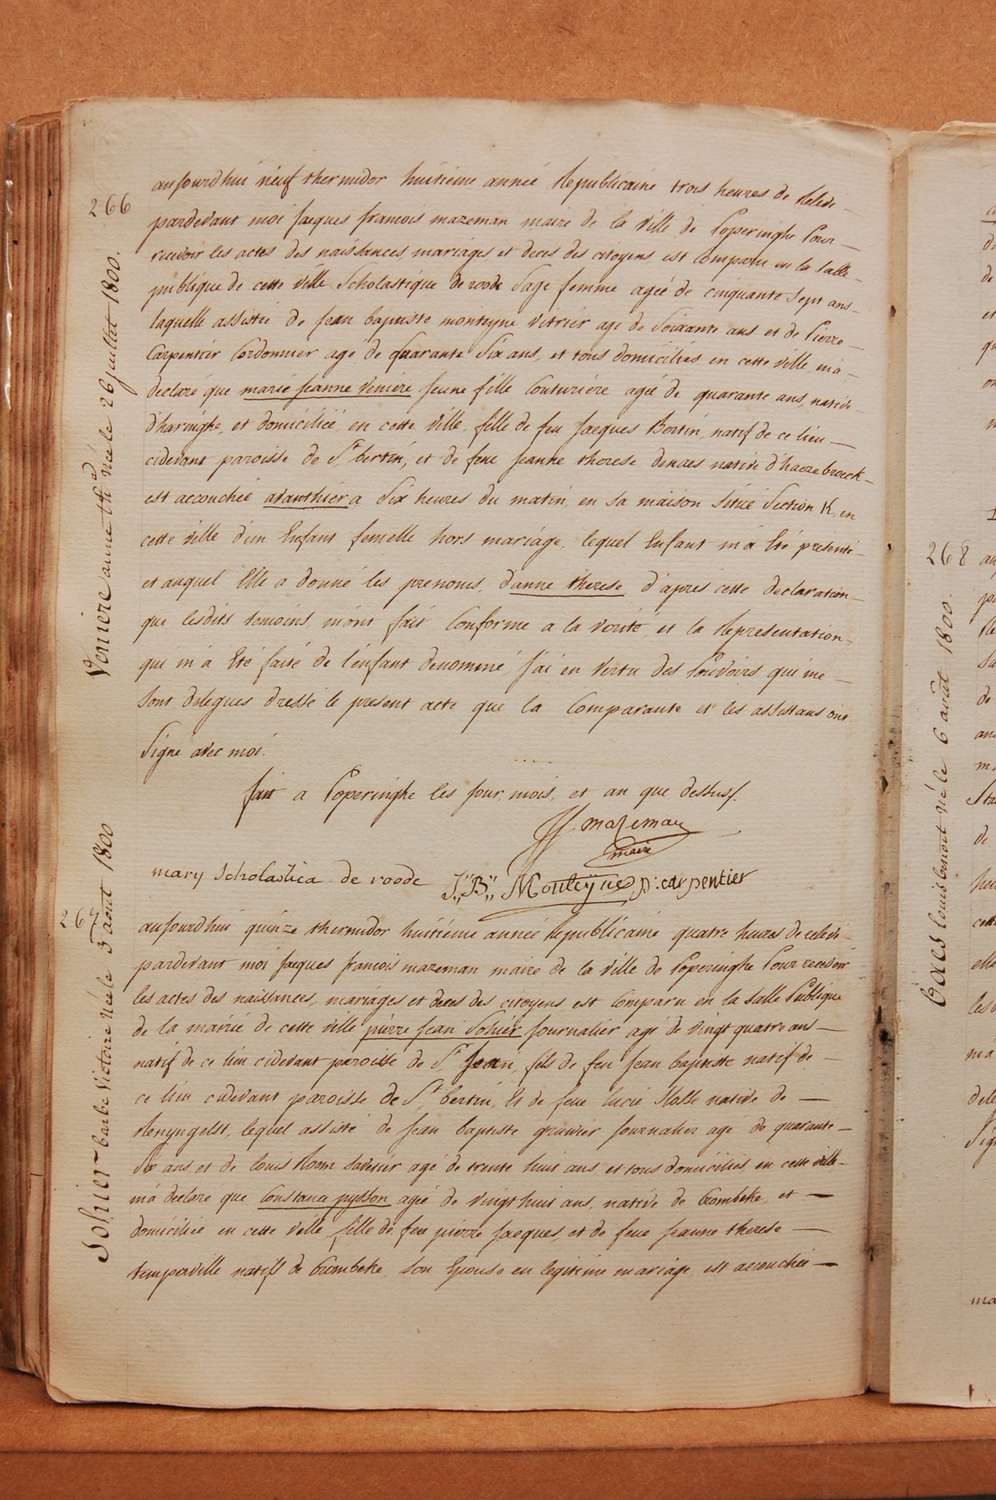 266
Veniere anne th. née le 26 juillet 1800.
aujourdhui neuf thermidor huitieme année Republicaine trois heures de relevé
pardevant moi Jacques francois mazeman maire de la ville de Poperinghe Pour
recevoir les actes des naissances, mariages et deces des citoyens est comparue en la salle
publique de cette ville Scholastique de roode Sage femme agée de cinquante sept ans
laquelle assistée de Jean baptiste monteyne vitrier agé de Soixante ans et de Pierre
Carpentier Cordonnier agé de quarante Six ans, et tous domiciliés en cette ville m'a
declaré que marie jeanne veniere Jeune fille Couturiere agée de quarante ans, native
d'haringhe, et domiciliée en cette ville, fille de feu Jacques Bertin, natif de ce lieu
cidevant paroisse de St bertin, et de feue jeanne therese native d'hazebrouck
est accouchée avanthier a Six heures du matin, en sa maison Situé Section K, en
cette ville d'un Enfant femelle hors mariage, lequel Enfant m'a Eté presenté
et auquel Elle a donné les prenoms, d'anne therese, d'apres cette declaration
que lesdits temoins, m'ont fait Conforme a la verité et la Representation
qui m'a Eté faite de l'enfant denommé, J'ai en vertu des Pouvoirs qui me
sont delegues dressé le present acte que la Comparante et les assistans ont
Signé avec moi.
fait a Poperinghe les jour, mois, et an que dessus.
JJ. mazeman
maire
mary Scholastica de roode J:,B,, Monteÿne p: carpentier
267
Sohier barbe Victoire née le 3 aout 1800
aujourdhui quinze thermidor huitième année Republicaine quatre heures de relevé
pardevant moi Jacques francois mazeman maire de la ville de Poperinghe Pour recevoir
les actes des naissances, mariages et deces des citoyens est comparu en la Salle Publique
de la mairie de cette ville pierre Jean Sohier Journalier agé de vingt quatre ans
natif de ce lieu cidevant paroisse de St Jean, fils de feu Jean baptiste natif de
ce lieu cidevant paroisse de St bertin, Et de feue Lucie Stalle native de
Renyngelst, lequel assisté de Jean baptiste Journalier agé de quarante
Six ans et de louis Room agé de trente huit ans et tous domiciliés en cette ville
m'a declaré que Constance pyson agée de vingt huit ans, native de Crombeke, et
domiciliée en cette ville fille de feu pierre Jacques, et de feue jeanne therese
temperville natifs de Crombeke, Son Epouse en legitime mariage est accouchée
268
Louis benoit né le 6 août 1800.